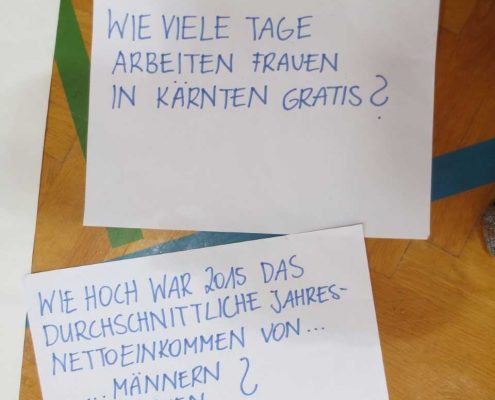 WIE VIELE TAGE
ARBEITEN FRAUEN
IN KÄRNTEN GRATIS?
WIE HOCH WAR 2015 DAS
DURCHSCHNITTLICHE JAHRES-
NETTOEINKOMMEN VON...
...MÄNNERN ?